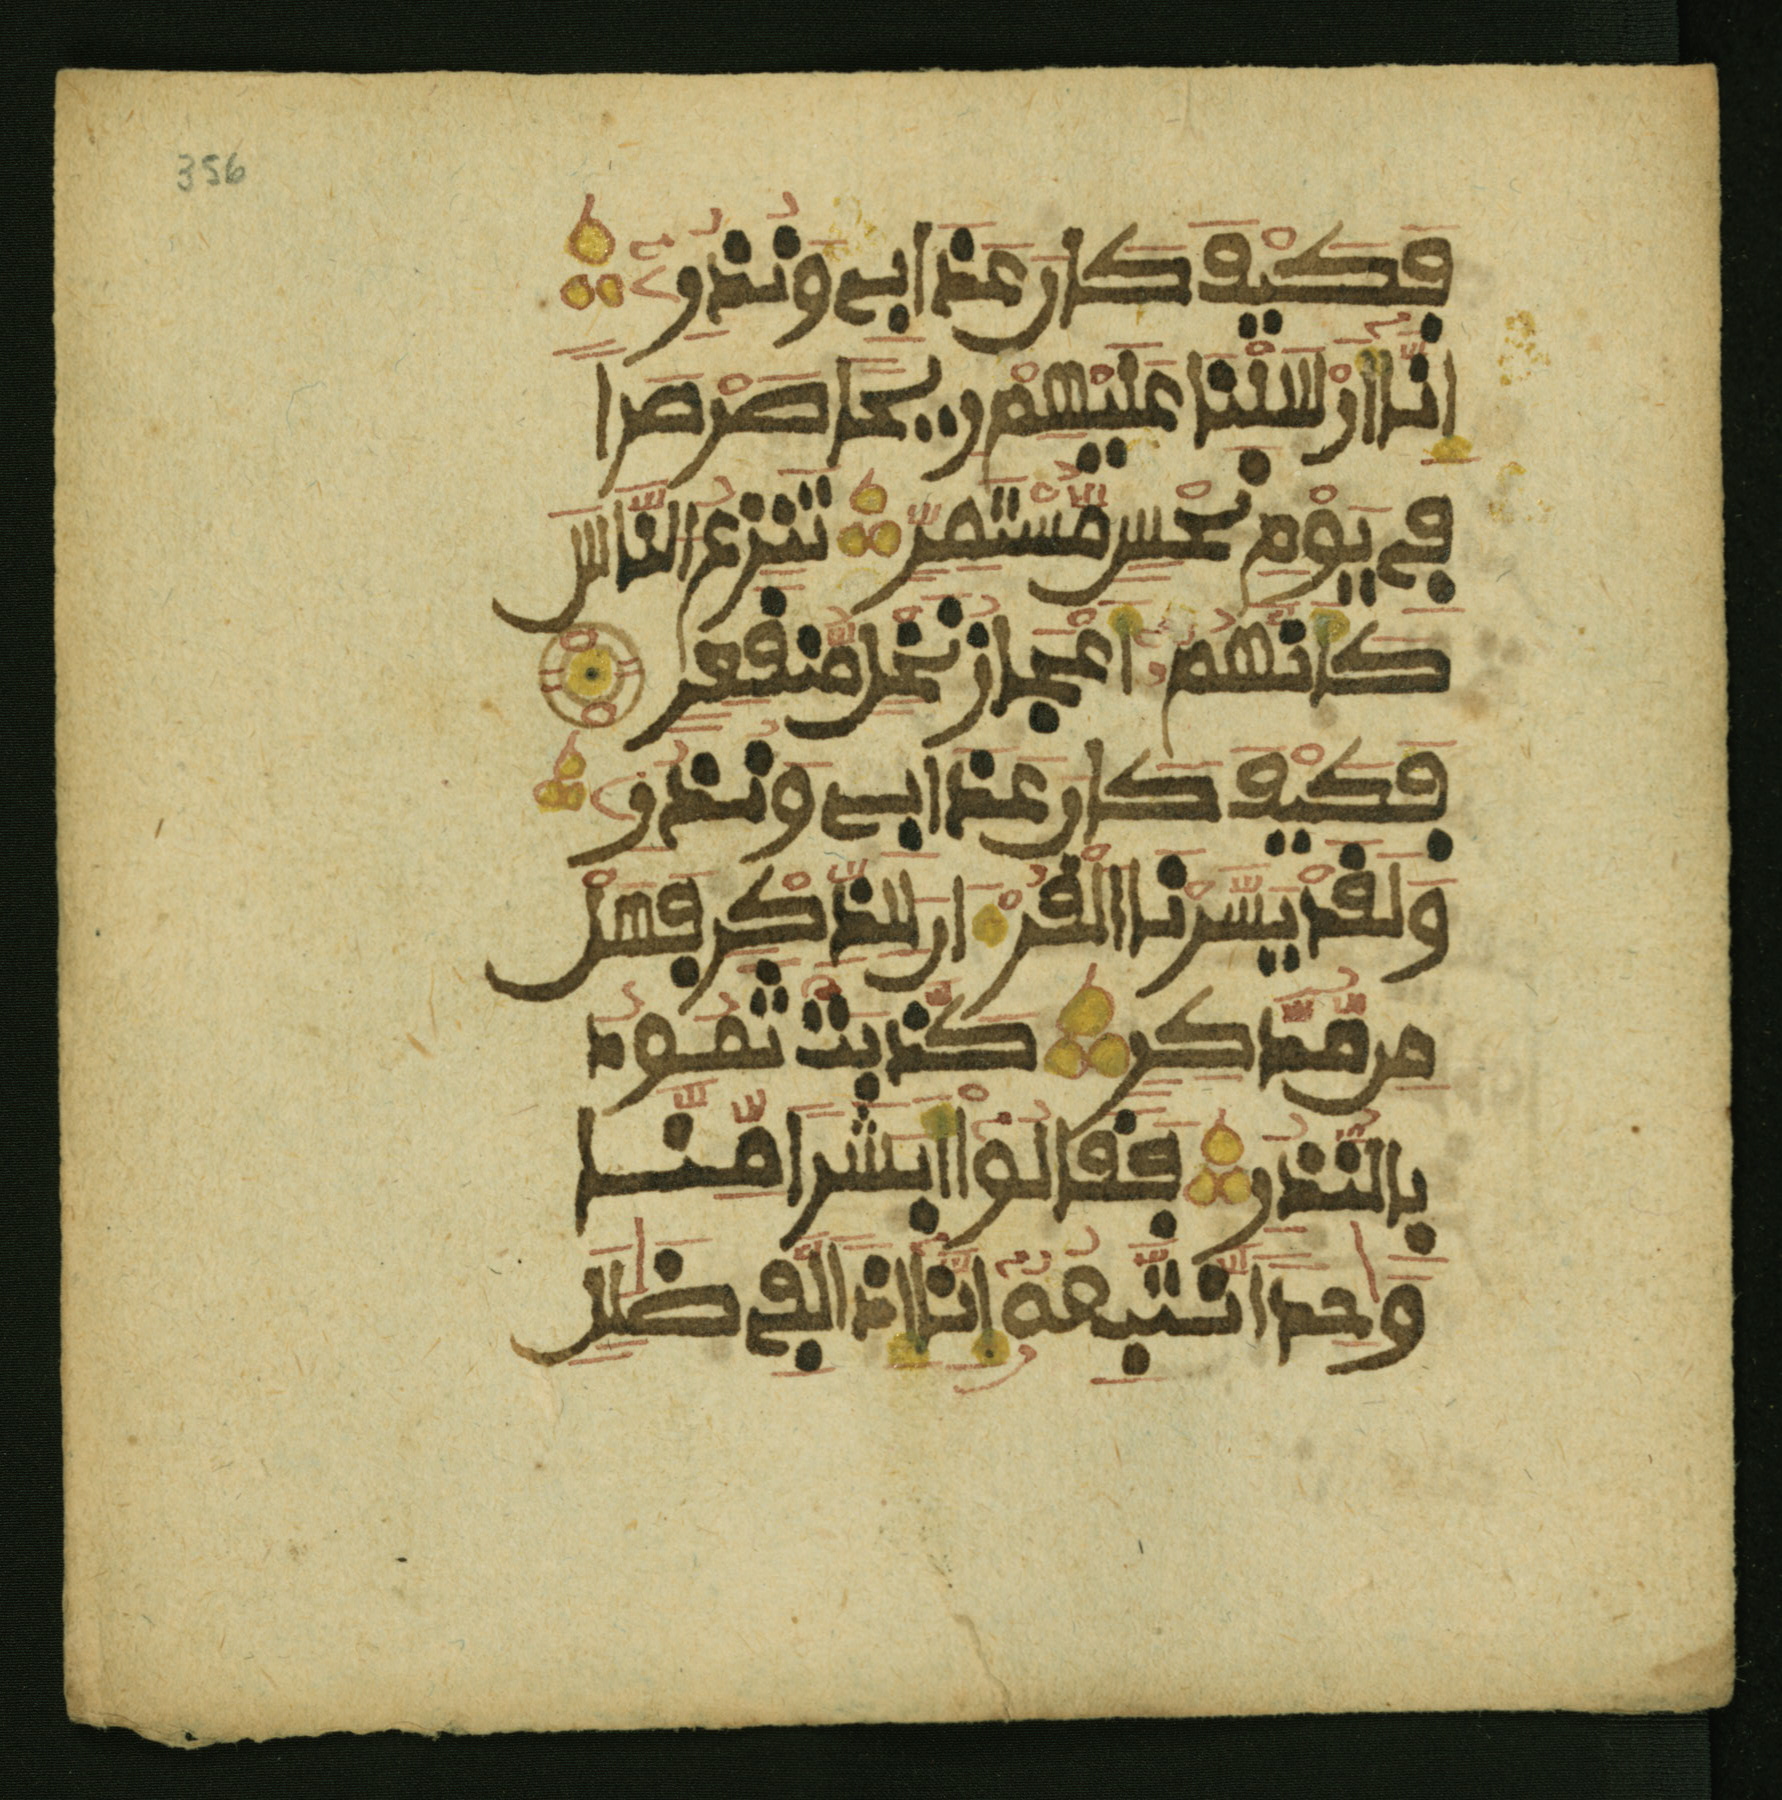 356
فَكَيْفَ كَانَ عَذَابِے وَنُذُرِۦ
اِنَّآ أَرْسَلْنَا عَلَيْهِمْ رِيحاً صَرْصَراً
فِے يَوْمِ نَحْسٍ مُّسْتَمِرٍّ تَنزِعُ النَّاسَ
كَأَنَّهُمُۥٓ أَعْجَازُ نَخْلٍ مُّنقَعِرٍ
فَكَيْفَ كَانَ عَذَابِے وَنُذُرِۦ
وَلَقَدْ يَسَّرْنَا اَلْقُرْءَانَ لِلذِّكْرِ فَهَلْ
مِن مُّدَّكِرٍ كَذَّبَتْ ثَمُودُ
بِالنُّذُرِ فَقَالُوٓاْ أَبَشَراً مِّنَّا
وَٰحِداً نَّتَّبِعُهُۥٓ إِنَّآ إِذاً لَّفِے ضَلَٰلٍ